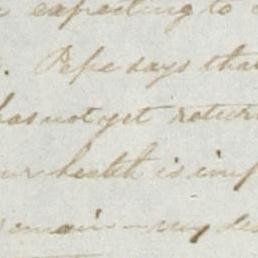 expecting to
. Pepe says that
has not yet return
ur health is imp
remain my de